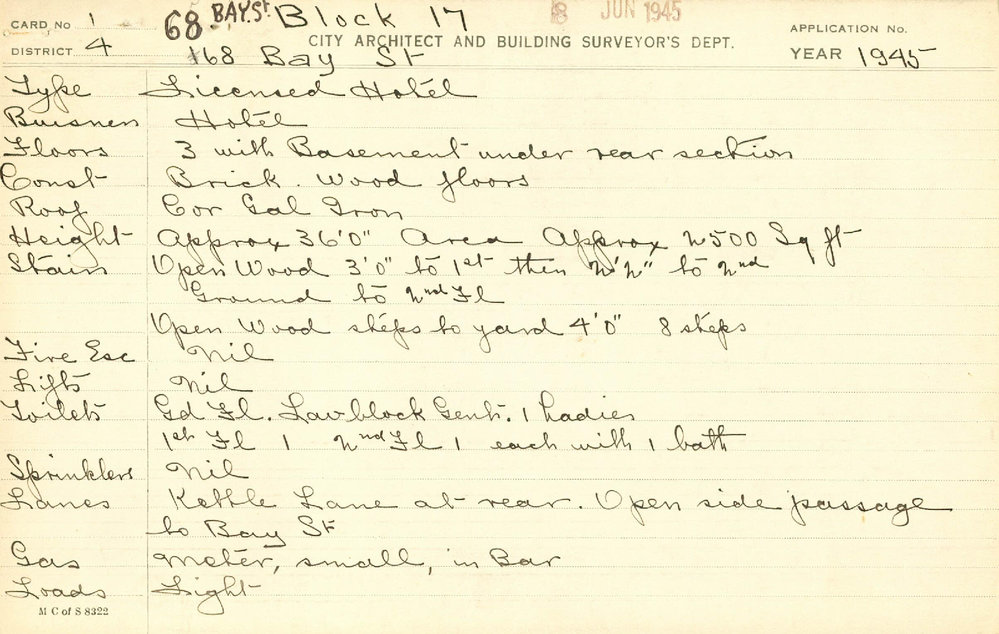 CARD No 1 68 BAY. St Block 17 8 JUN 1945 APPLICATION No.
DISTRICT 4 CITY ARCHITECT AND BUILDING SURVEYOR'S DEPT. YEAR 1945
168 Bay St
Type Licensed Hotel
Buisness Hotel
Floors 3 with Basement under rear section
Const Brick. Wood floors
Roof Cor Gal Iron
Height Approx 36'0" Area Approx 2500 Sq ft
Stairs Open Wood 3'0" to 1st then 2'2" to 2nd
Ground to 2nd Fl
Open Wood steps to yard 4'0" 8 steps
Fire Esc Nil
Lifts Nil
Toilets Gd Fl. Lav block Gents. 1 Ladies
1st Fl 1 2nd Fl 1 each with 1 bath
Sprinklers Nil
Lanes Kettle Lane at rear. Open side passage
to Bay St
Gas Meter, small, in Bar
Loads Light
M C of S 8322